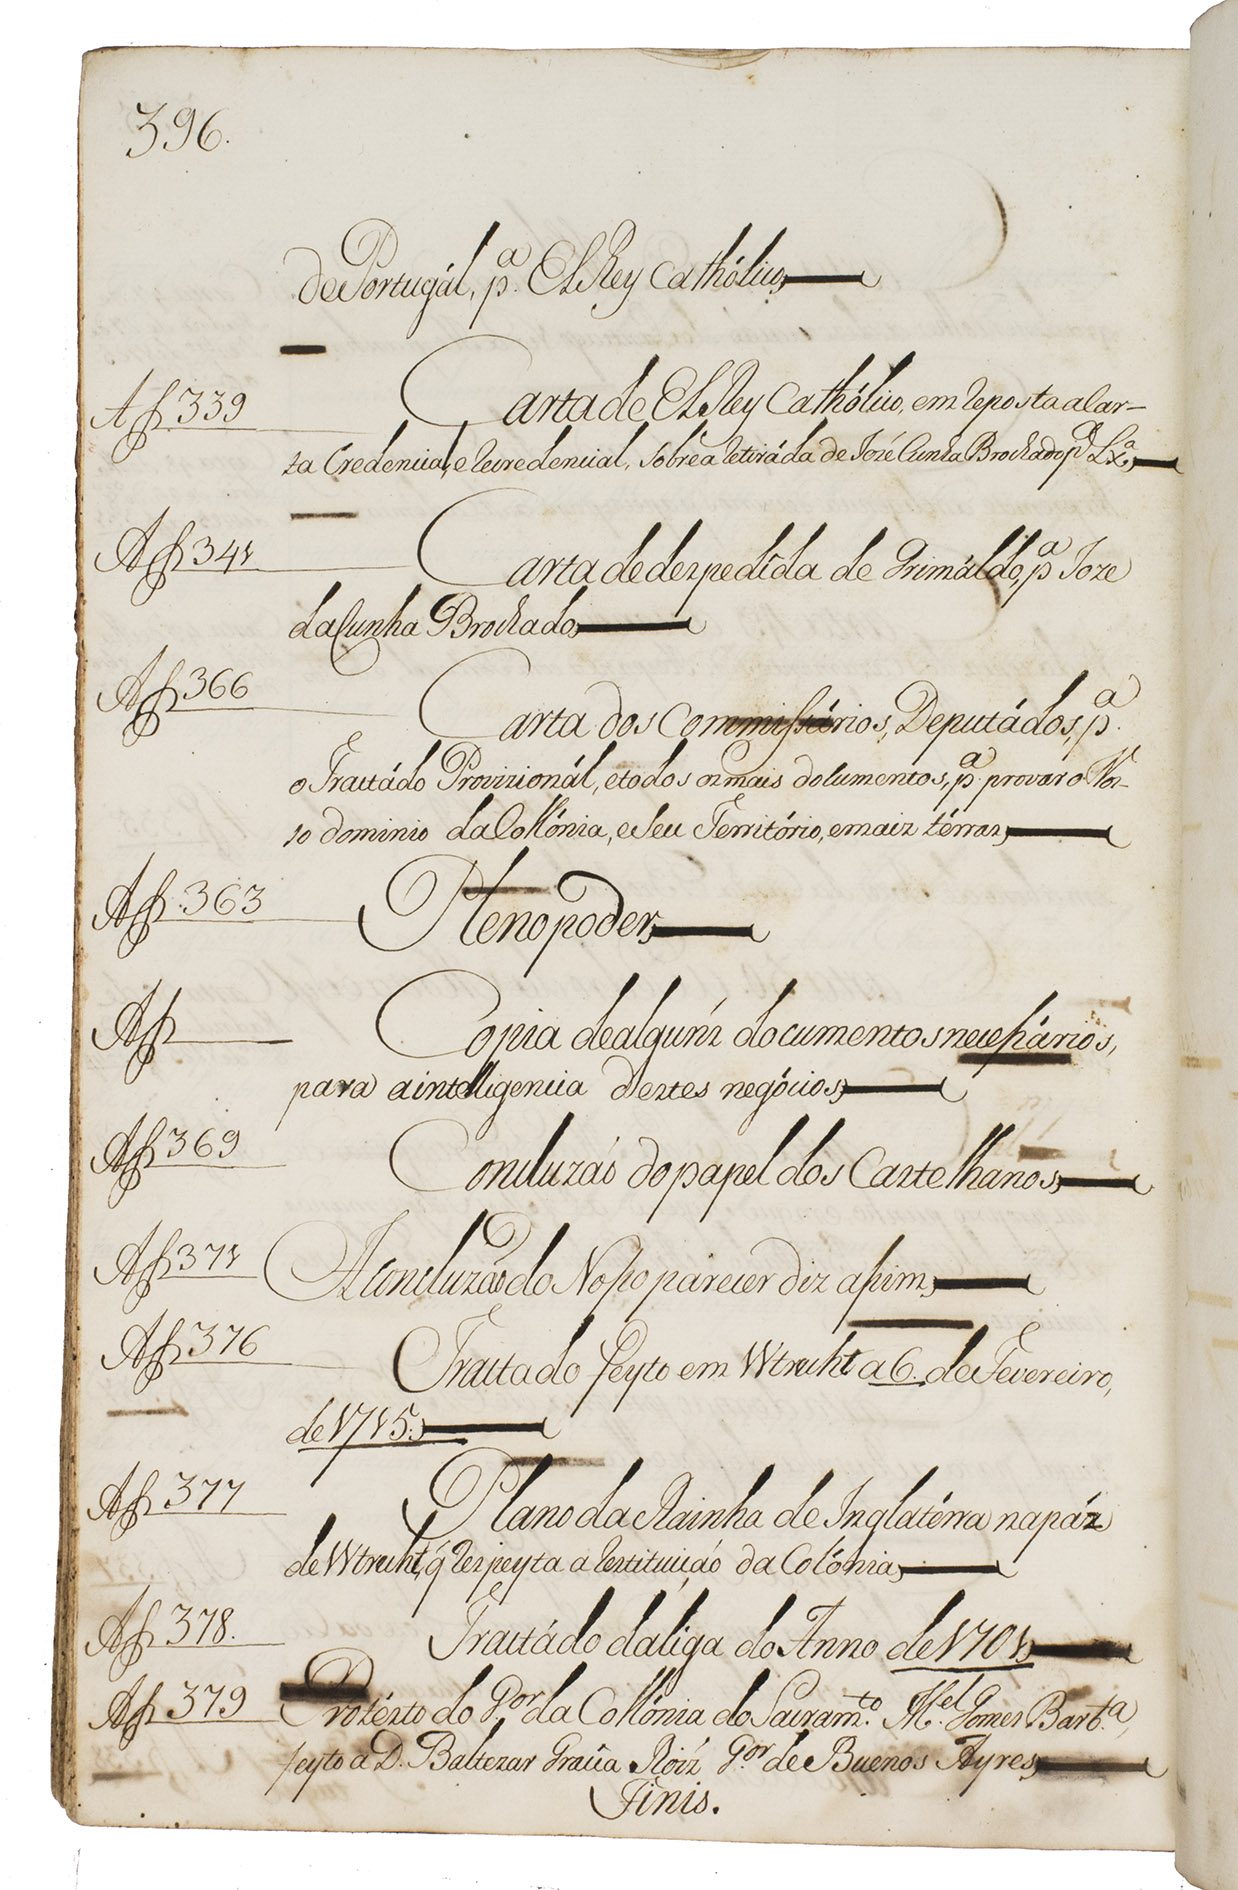 396.
de Portugál, p.ª El Rey Cathólico,
Aff 339 Carta de El Rey Cathólico, em reposta a Car-
ta Credencial, e recredencial, sobre a retiráda de Jozé Cunha Brochado p.ª Lx.ª
Aff 341 Carta de dezpedîda de Grimáldo, p.ª Joze
da Cunha Brochado,
Aff 366 Carta dos Commissários, Deputádos, p.ª
o Trattádo Provizionál, e todos oz mais documentos, p.ª provar o Nos-
so dominio da Collónia, e Seu Território, e maiz térraz,
Aff 363 Pleno poder,
Aff Copia de algunz documentos necessários,
para a intelligencia deztes negócios,
Aff 369 Concluzaó do papel dos Caztelhanos,
Aff 371 A Concluzaõ do Nosso parecer diz assim,
Aff 376 Trattado feyto em Wtrecht a 6. de Fevereiro,
de 1715.
Aff 377 Plano da Rainha de Inglatérra na páz
de Wtrecht, q̃ rezpeyta a reztituiçaó da Colónia,
Aff 378. Trattádo da liga do Anno de 1701,
Aff 379 Protézto do G.ºr da Collónia do Sacram.to M.el Gomez Barb.ª,
feyto a D. Baltezar Gracîa Roiz G.ºr de Buenos Ayres,
Finis.